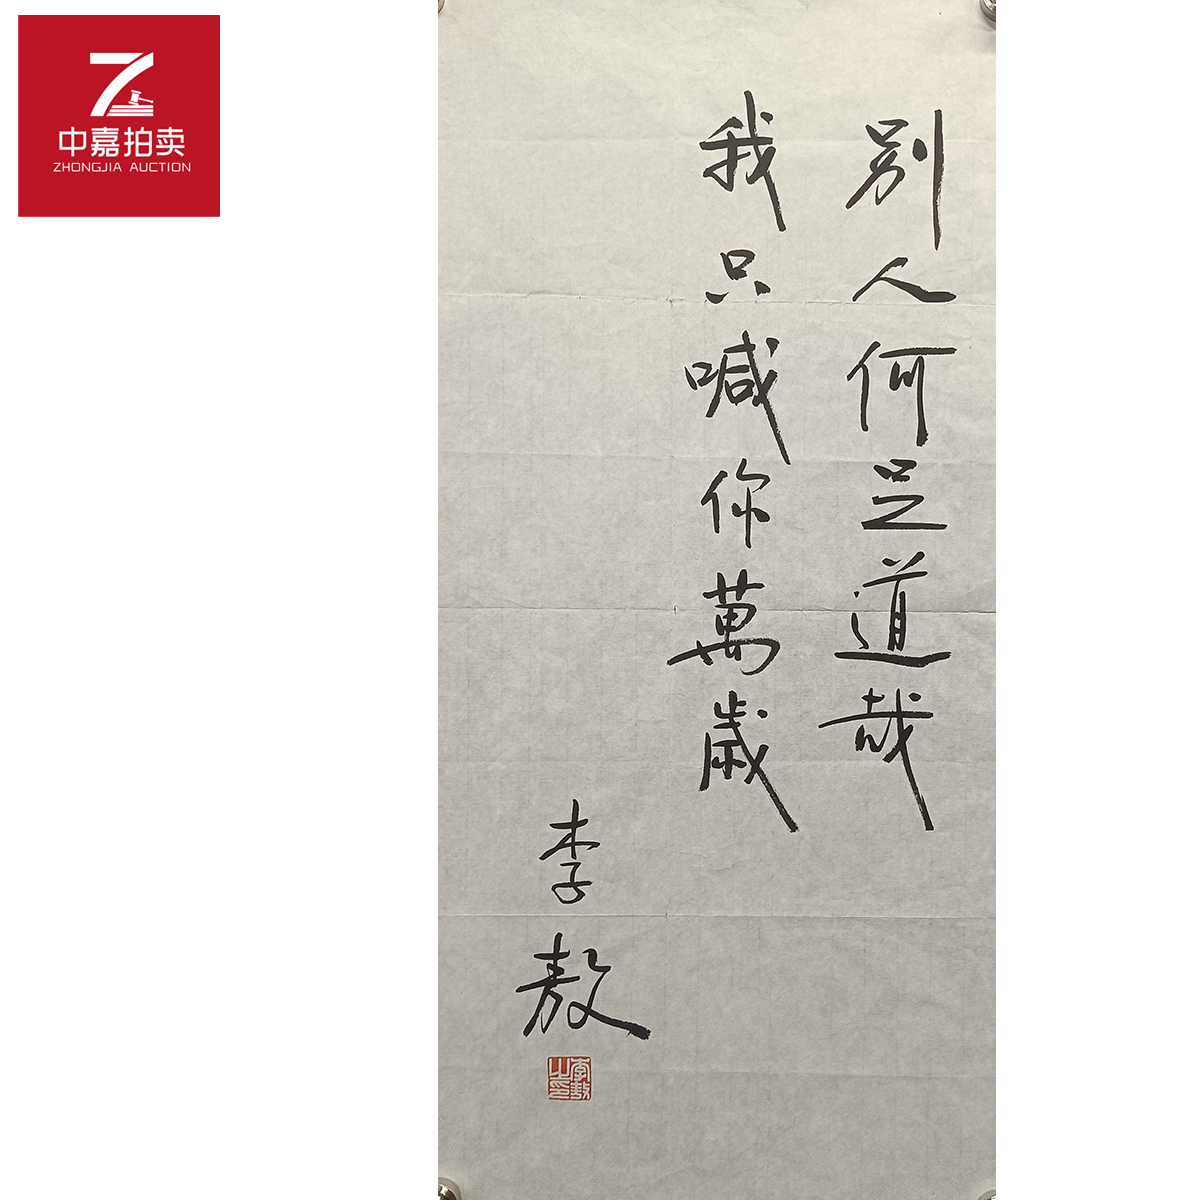 中嘉拍卖
ZHONGJIA AUCTION
別人何足道哉
我只喊你萬歲
李敖
李敖之印